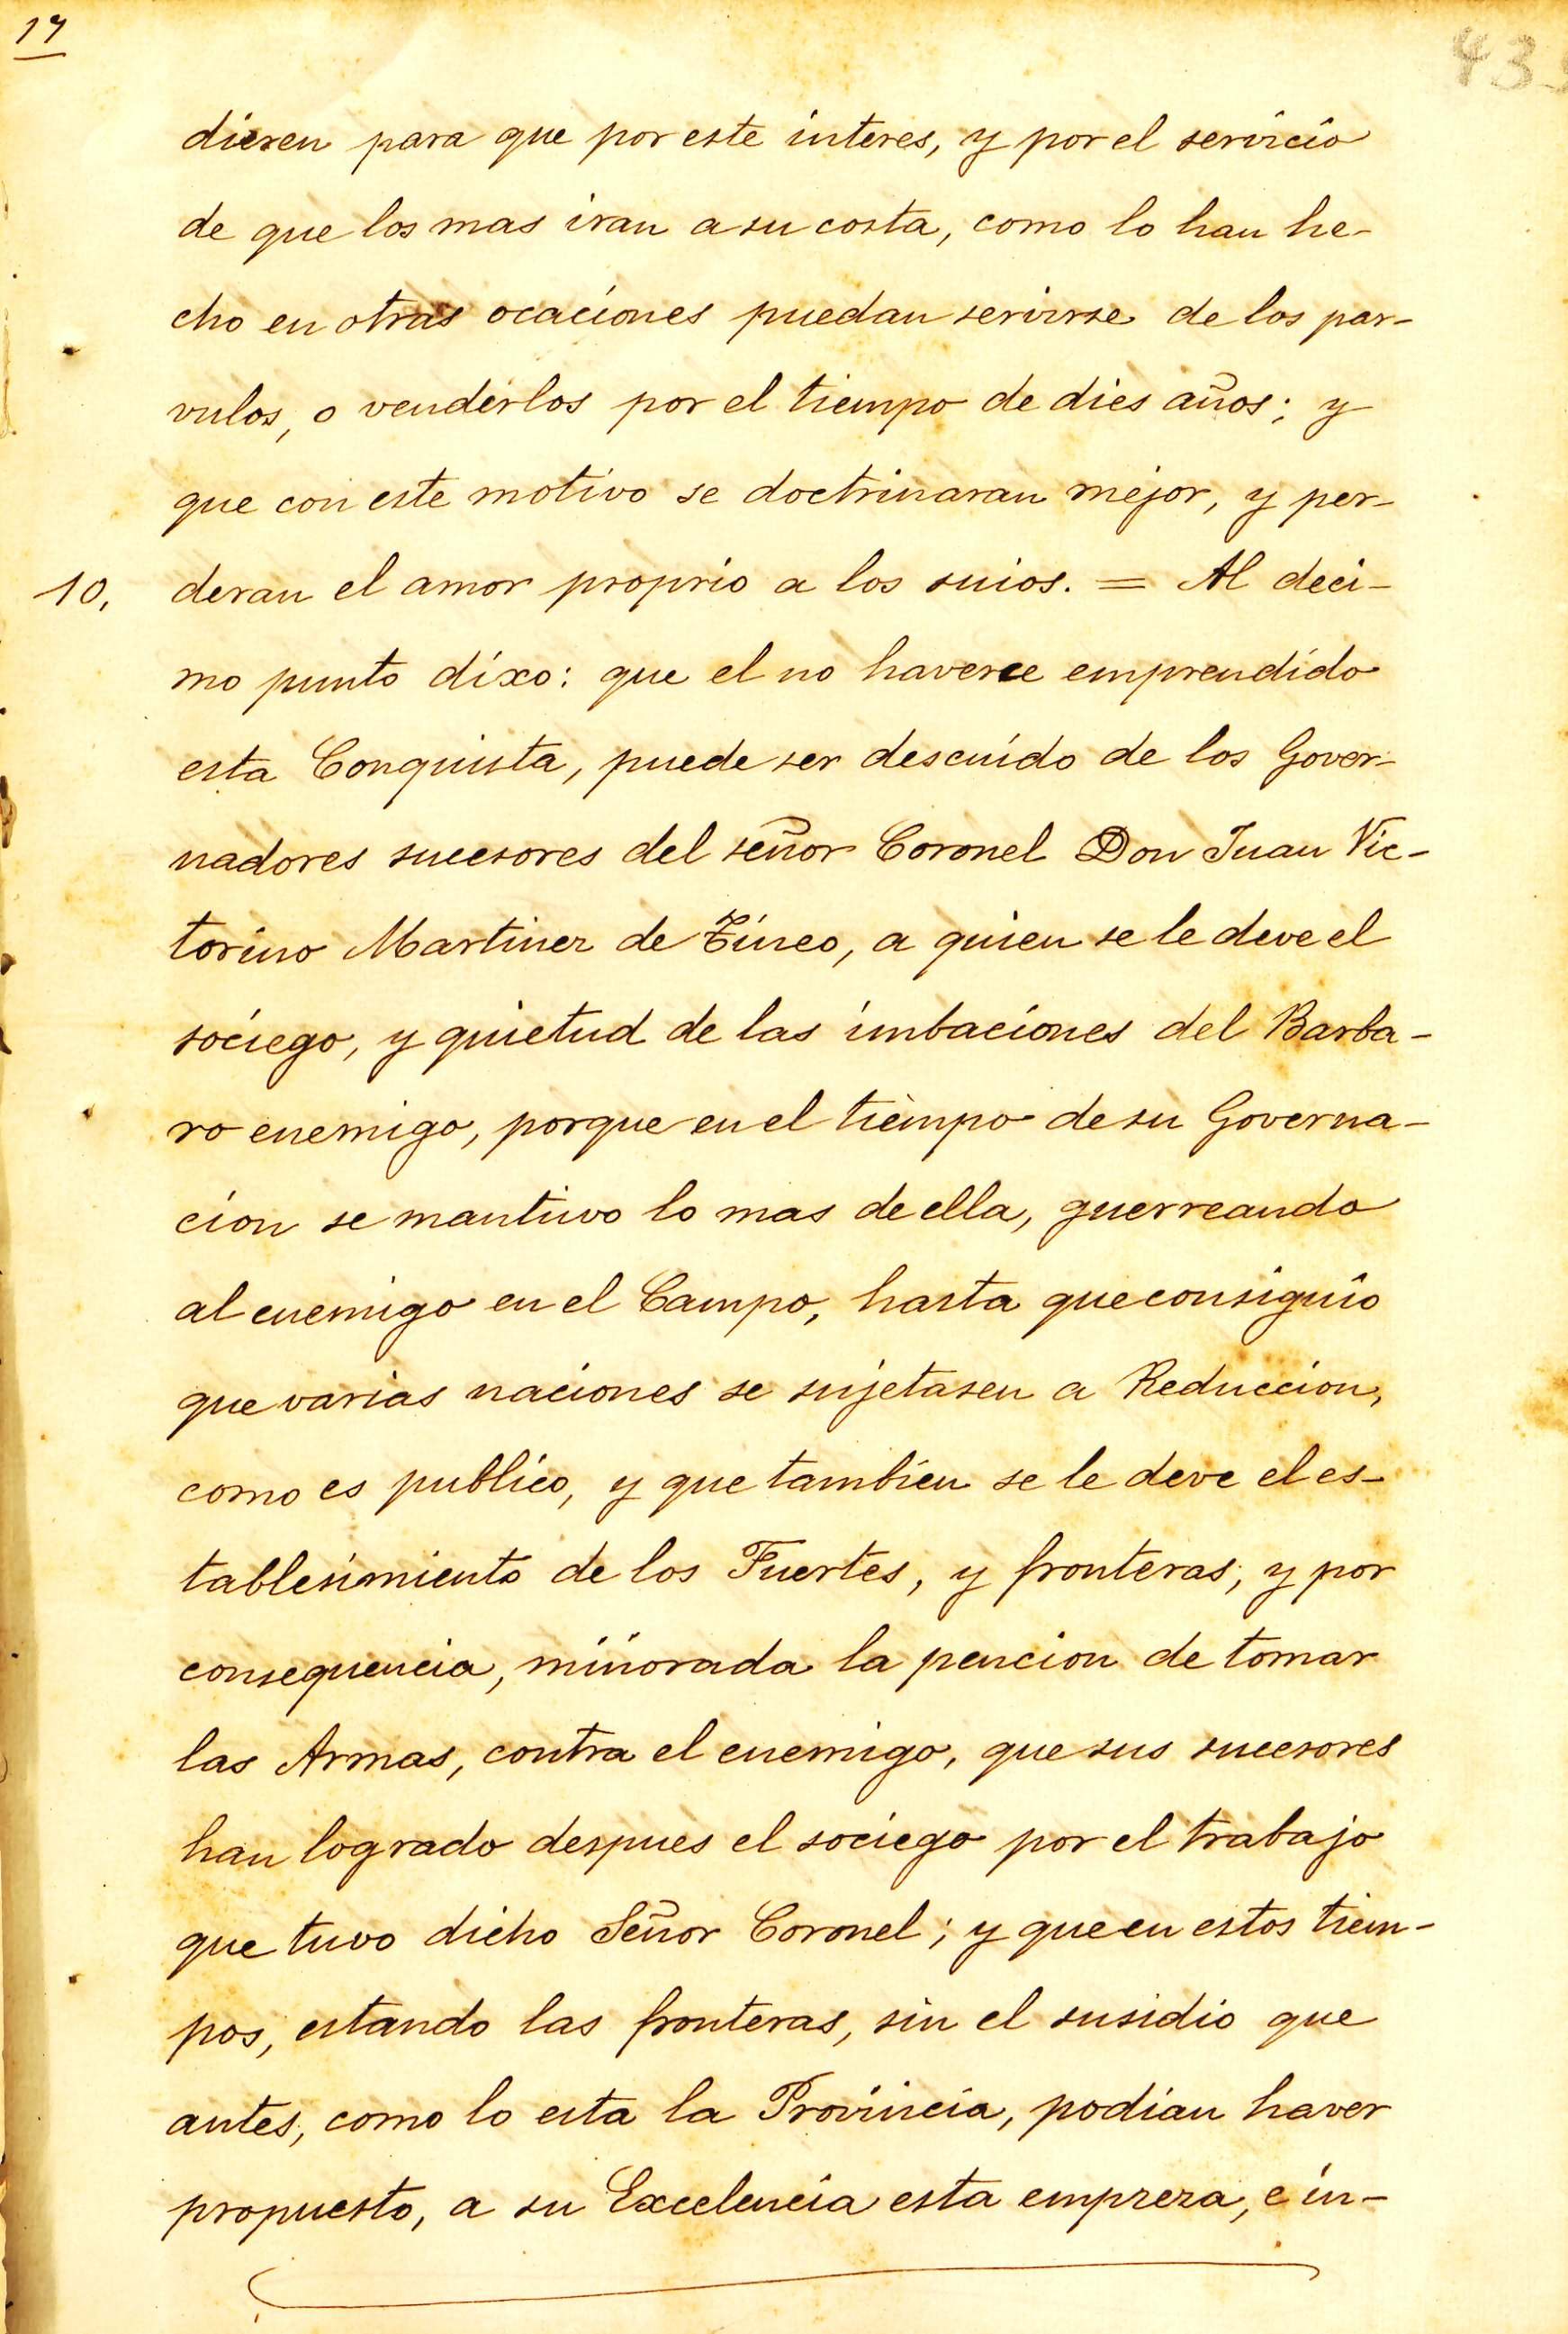 17
dieren para que por este interes, y por el servicio
de que los mas iran a su costa, como lo han he-
cho en otras ocaciones puedan servirse de los par-
vulos, o venderlos por el tiempo de dies años; y
que con este motivo se doctrinaran mejor, y per-
10, deran el amor proprio a los suios. = Al deci-
mo punto dixo: que el no haverce emprendido
esta Conquista, puede ser descuido de los Gover-
nadores sucesores del señor Coronel Don Juan Vic-
torino Martinez de Tineo, a quien se le deve el
sociego, y quietud de las imbaciones del Barba-
ro enemigo, porque en el tiempo de su Governa-
cion se mantuvo lo mas de ella, guerreando
al enemigo en el Campo, hasta que consiguio
que varias naciones se sujetasen a Reduccion,
como es publico, y que tambien se le deve el es-
tablesimiento de los Fuertes, y fronteras; y por
consequencia, minorada la pencion de tomar
las Armas, contra el enemigo, que sus sucesores
han logrado despues el sociego por el trabajo
que tuvo dicho Señor Coronel; y que en estos tiem-
pos, estando las fronteras, sin el susidio que
antes, como lo esta la Provincia, podian haver
propuesto, a su Excelencia esta empreza, e in-